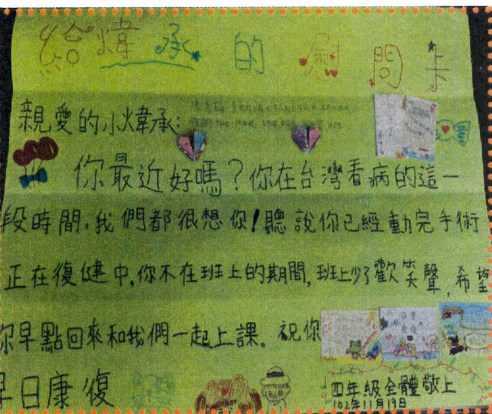 給煒承的慰問卡
親愛的小煒承:
你最近好嗎?你在台灣看病的這一
段時間,我們都很想你!聽說你已經動完手術
正在復健中,你不在班上的期間,班上少了歡笑聲,希望
你早點回來和我們一起上課。祝你
早日康復
四年級全體敬上
102年11月19日